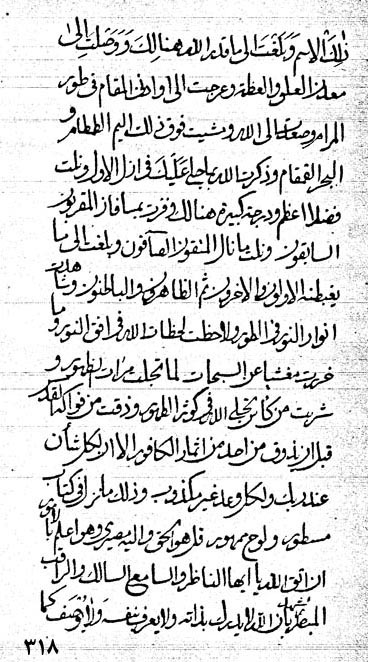 ذلك الاسم وبلغت الى ما قدر الله هنالك ووصلت الى
معدن العلو والعظمة وعرجت الى او ادنى المقام فى طور
الى الله ومشيت فوق ذلك اليم الطمطام و
البحر القمقام وذكرت الله بما تجلى عليك فى ازل الاول ونلت
فضلا اعظم ودرجة كبيرة هنالك وفزت بما قد فاز المقربون
السابقون ونلت ما نال المتقون الصافون وبلغت الى ما
يغبطنه الاولون والاخرون ثم الظاهرون والباطنون وشاهدت
انوار النور فى الطور ولاحظت لحظات الله فى افق النور وما
السبحات لما تجلت مرات الظهور و
شربت من كأس تجلى الله فى كوثر الظهور وذقت من فواكه القدس
قبل ان يذوق من احد من اثمار الكافور الا ان لكل شأن
عند ربك ولكل وعد غير مكذوب وذلك ما نزل فى كتاب
مسطور ولوح ممهور قل هو الحق واليه مصيرى وهو اعلم بالامور
ان اتق الله يا ايها الناظر والسامع السالك والراقب
المبصر بان الله لا يدرك بذاته ولا يعرف بنفسه ولا يوصف كما
٣١٨